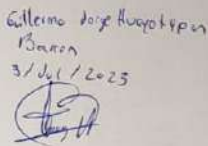 Guillermo Jorge Huayotepan
Barron
3/Jul/2023